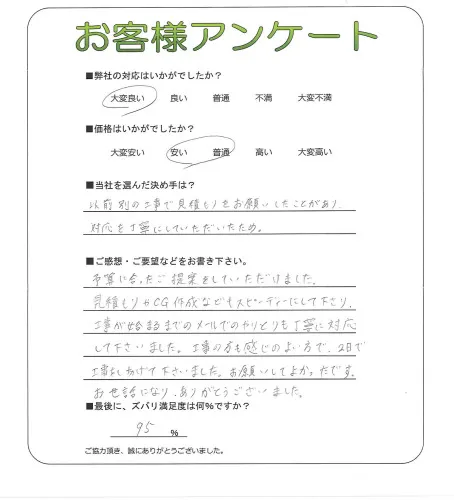 お客様アンケート
■弊社の対応はいかがでしたか?
大変良い 良い 普通 不満 大変不満
■価格はいかがでしたか?
大変安い 安い 普通 高い 大変高い
■当社を選んだ決め手は?
以前別の工事で見積もりをお願いしたことがあり
対応を丁寧にしていただいたため。
■ご感想・ご要望などをお書き下さい。
予算に合ったご提案をしていただけました。
見積もりやCG作成などもスピーディーにして下さり、
工事が始まるまでのメールでのやりとりも丁寧に対応
して下さいました。工事の方も感じのよい方で、2日で
工事をしあげて下さいました。お願いしてよかったです。
お世話になり、ありがとうございました。
■最後に、ズバリ満足度は何%ですか?
95 %
ご協力頂き、誠にありがとうございました。